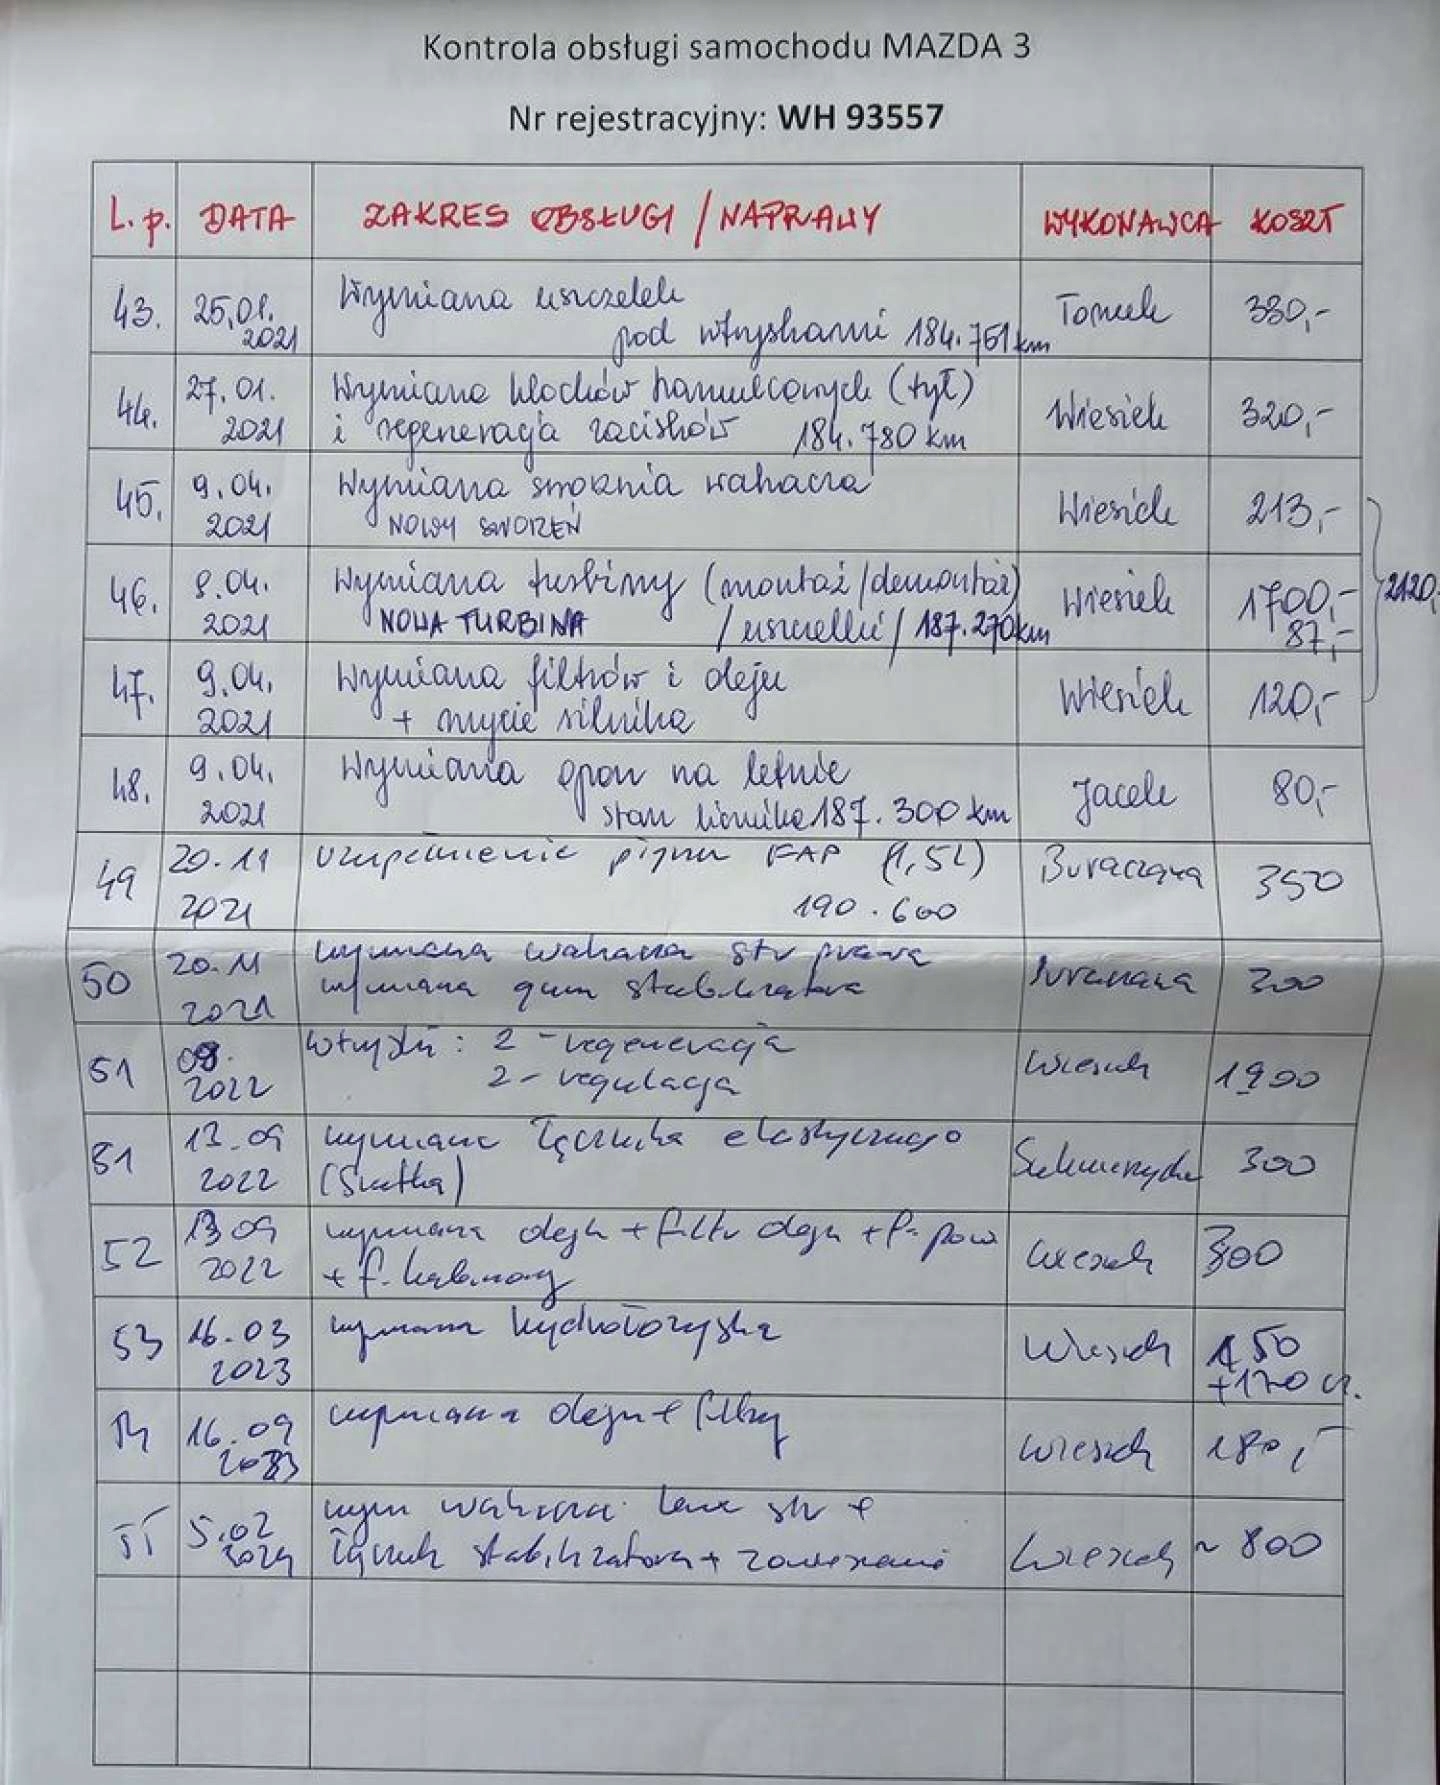 Kontrola obsługi samochodu MAZDA 3
Nr rejestracyjny: WH 93557
L.p. DATA ZAKRES OBSŁUGI / NAPRAWY WYKONAWCA KOSZT
43. 25.01. 2021 Wymiana uszczelek Tomek 380,-
pod wtryskami 184.751 km
44. 27.01. 2021 Wymiana klocków hamulcowych (tył) Wiesiek 320,-
i regeneracja zacisków 184.780 km
45. 9.04. 2021 Wymiana sworznia wahacza Wiesiek 213,-
NOWY SWORZEŃ
46. 9.04. 2021 Wymiana turbiny (montaż/demontaż) Wiesiek 1700,-
NOWA TURBINA /uszczelki/ 187.270 km 87,-
2120,-
47. 9.04. 2021 Wymiana filtrów i oleju Wiesiek 120,-
+ mycie silnika
48. 9.04. 2021 Wymiana opon na letnie Jacek 80,-
stan licznika 187.300 km
49 20.11 2021 uzupełnienie płynu FAP (1,5L) Buraczana 350
190.600
50 20.11 2021 wymiana wahacza str prawa 300
wymiana gum stabilizatora
51 09. 2022 wtryski: 2 - regeneracja Wiesiek 1900
2 - regulacja
51 13.09 2022 wymiana łącznika elastycznego 300
(Siatka)
52 13 09 2022 wymiana oleju + filtr oleju + f. pow Wiesiek 300
+ f. kabinowy
53 16.03 2023 wymiana Wiesiek 150
+170 cz.
54 16.09 2023 wymiana oleju + filtry Wiesiek 180,-
55 5.02 2024 wym wahacza lewa str + Wiesiek ~ 800
łącznik stabilizatora + zawieszenie